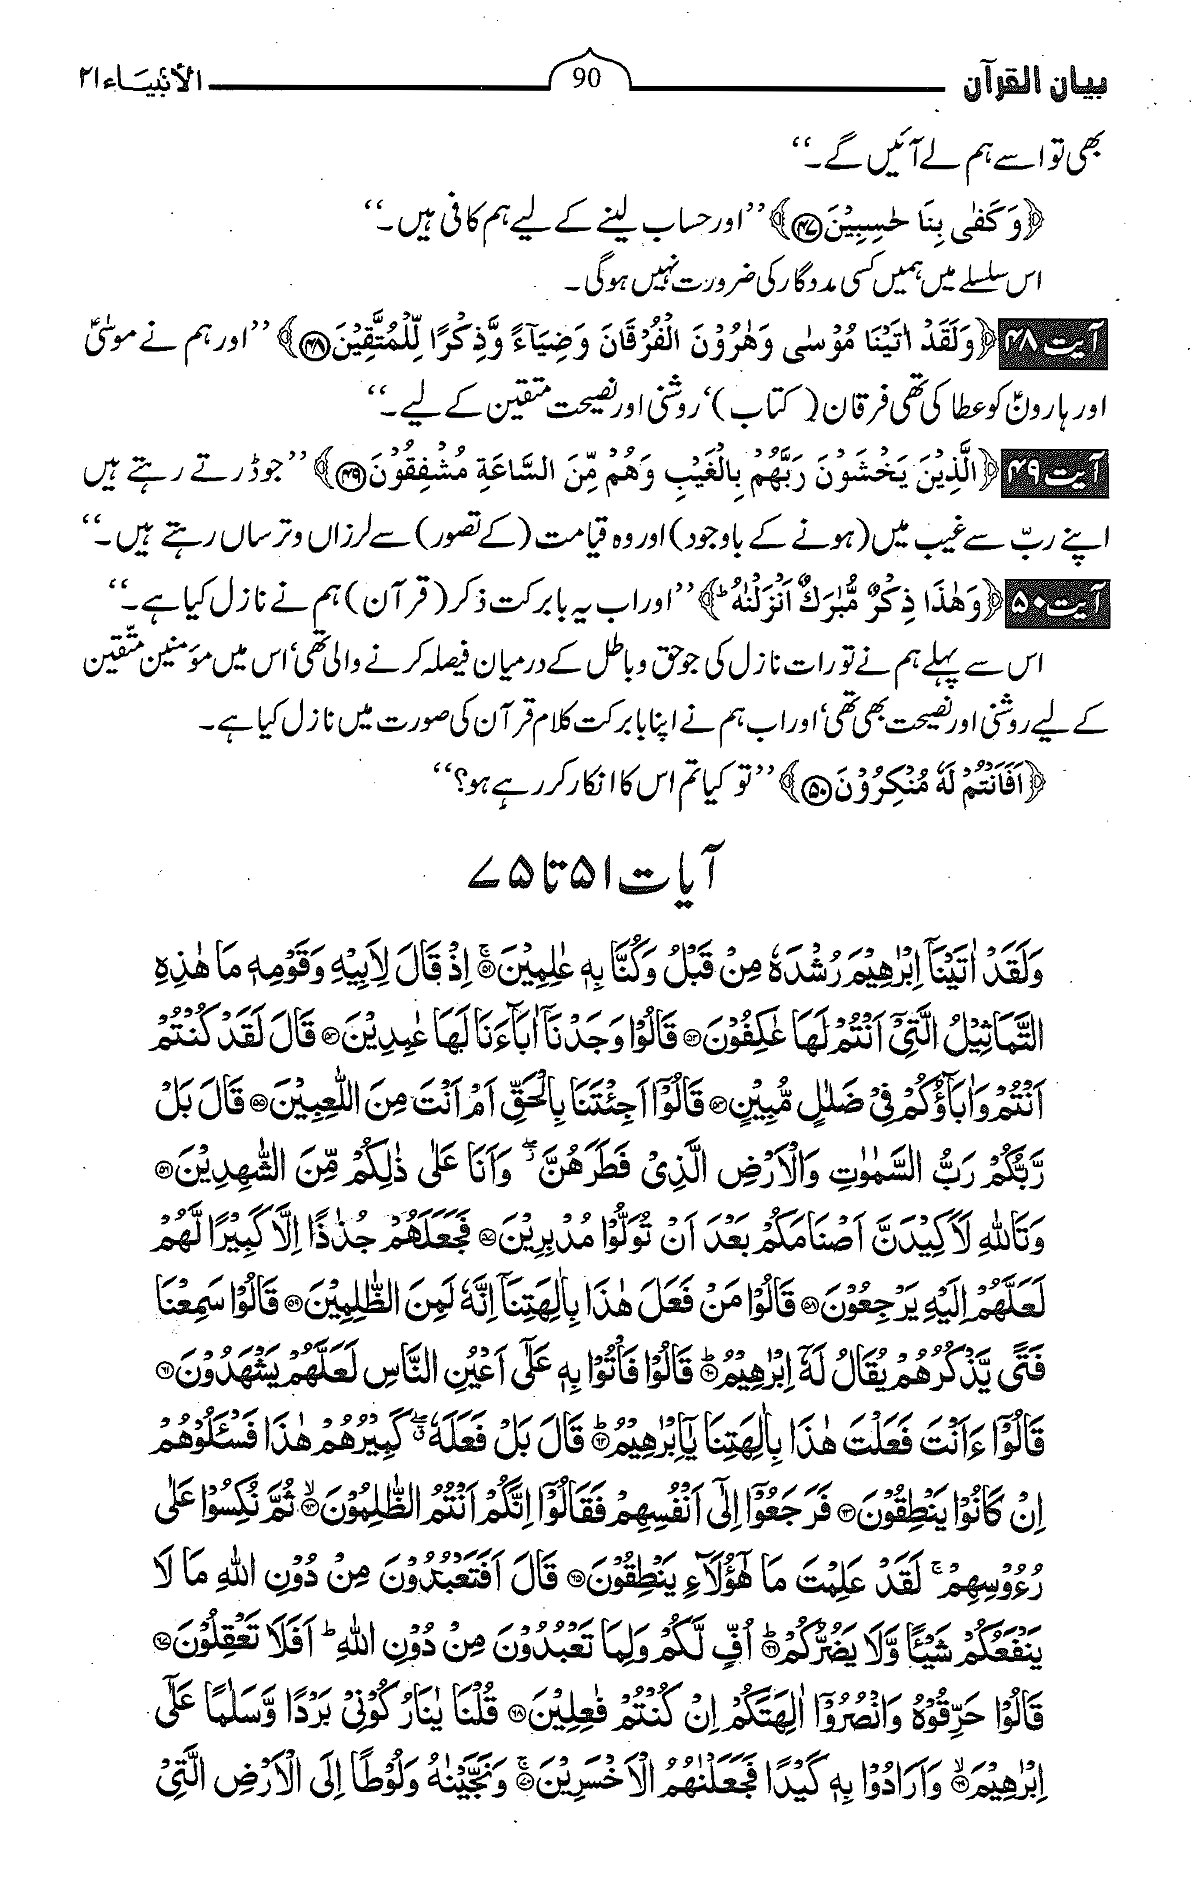 بیان القرآن 90 الأنبیاء ۲۱
بھی تو اسے ہم لے آئیں گے۔‘‘
﴿وَكَفٰى بِنَا حٰسِبِيْنَ ﴿۴۷﴾﴾ ’’اور حساب لینے کے لیے ہم کافی ہیں۔‘‘
اس سلسلے میں ہمیں کسی مددگار کی ضرورت نہیں ہوگی۔
آیت ۴۸ ﴿وَلَقَدْ اٰتَيْنَا مُوْسٰى وَهٰرُوْنَ الْفُرْقَانَ وَضِيَآءً وَّذِكْرًا لِّلْمُتَّقِيْنَ ﴿۴۸﴾﴾ ’’اور ہم نے موسیٰؑ
اور ہارونؑ کو عطا کی تھی فرقان (کتاب)‘ روشنی اور نصیحت متقین کے لیے۔‘‘
آیت ۴۹ ﴿الَّذِيْنَ يَخْشَوْنَ رَبَّهُمْ بِالْغَيْبِ وَهُمْ مِّنَ السَّاعَةِ مُشْفِقُوْنَ ﴿۴۹﴾﴾ ’’جو ڈرتے رہتے ہیں
اپنے ربّ سے غیب میں (ہونے کے باوجود) اور وہ قیامت (کے تصور) سے لرزاں و ترساں رہتے ہیں۔‘‘
آیت ۵۰ ﴿وَهٰذَا ذِكْرٌ مُّبٰرَكٌ اَنْزَلْنٰهُ ؕ﴾ ’’اور اب یہ بابرکت ذکر (قرآن) ہم نے نازل کیا ہے۔‘‘
اس سے پہلے ہم نے تورات نازل کی جو حق و باطل کے درمیان فیصلہ کرنے والی تھی‘ اس میں مؤمنین متّقین
کے لیے روشنی اور نصیحت بھی تھی‘ اور اب ہم نے اپنا بابرکت کلام قرآن کی صورت میں نازل کیا ہے۔
﴿اَفَاَنْتُمْ لَهٗ مُنْكِرُوْنَ ﴿۵۰﴾﴾ ’’تو کیا تم اس کا انکار کر رہے ہو؟‘‘
آیات ۵۱ تا ۷۵
وَلَقَدْ اٰتَيْنَآ اِبْرٰهِيْمَ رُشْدَهٗ مِنْ قَبْلُ وَكُنَّا بِهٖ عٰلِمِيْنَ ۚ﴿۵۱﴾ اِذْ قَالَ لِاَبِيْهِ وَقَوْمِهٖ مَا هٰذِهِ
التَّمَاثِيْلُ الَّتِيْٓ اَنْتُمْ لَهَا عٰكِفُوْنَ ﴿۵۲﴾ قَالُوْا وَجَدْنَآ اٰبَآءَنَا لَهَا عٰبِدِيْنَ ﴿۵۳﴾ قَالَ لَقَدْ كُنْتُمْ
اَنْتُمْ وَاٰبَآؤُكُمْ فِيْ ضَلٰلٍ مُّبِيْنٍ ﴿۵۴﴾ قَالُوْٓا اَجِئْتَنَا بِالْحَقِّ اَمْ اَنْتَ مِنَ اللّٰعِبِيْنَ ﴿۵۵﴾ قَالَ بَلْ
رَّبُّكُمْ رَبُّ السَّمٰوٰتِ وَالْاَرْضِ الَّذِيْ فَطَرَهُنَّ ۖ وَاَنَا عَلٰى ذٰلِكُمْ مِّنَ الشّٰهِدِيْنَ ﴿۵۶﴾
وَتَاللّٰهِ لَاَكِيْدَنَّ اَصْنَامَكُمْ بَعْدَ اَنْ تُوَلُّوْا مُدْبِرِيْنَ ﴿۵۷﴾ فَجَعَلَهُمْ جُذٰذًا اِلَّا كَبِيْرًا لَّهُمْ
لَعَلَّهُمْ اِلَيْهِ يَرْجِعُوْنَ ﴿۵۸﴾ قَالُوْا مَنْ فَعَلَ هٰذَا بِاٰلِهَتِنَآ اِنَّهٗ لَمِنَ الظّٰلِمِيْنَ ﴿۵۹﴾ قَالُوْا سَمِعْنَا
فَتًى يَّذْكُرُهُمْ يُقَالُ لَهٗٓ اِبْرٰهِيْمُ ؕ﴿۶۰﴾ قَالُوْا فَاْتُوْا بِهٖ عَلٰٓى اَعْيُنِ النَّاسِ لَعَلَّهُمْ يَشْهَدُوْنَ ﴿۶۱﴾
قَالُوْٓا ءَاَنْتَ فَعَلْتَ هٰذَا بِاٰلِهَتِنَا يٰٓاِبْرٰهِيْمُ ؕ﴿۶۲﴾ قَالَ بَلْ فَعَلَهٗ ۖ ق كَبِيْرُهُمْ هٰذَا فَسْـَٔلُوْهُمْ
اِنْ كَانُوْا يَنْطِقُوْنَ ﴿۶۳﴾ فَرَجَعُوْٓا اِلٰٓى اَنْفُسِهِمْ فَقَالُوْٓا اِنَّكُمْ اَنْتُمُ الظّٰلِمُوْنَ ۙ﴿۶۴﴾ ثُمَّ نُكِسُوْا عَلٰى
رُءُوْسِهِمْ ۚ لَقَدْ عَلِمْتَ مَا هٰٓؤُلَآءِ يَنْطِقُوْنَ ﴿۶۵﴾ قَالَ اَفَتَعْبُدُوْنَ مِنْ دُوْنِ اللّٰهِ مَا لَا
يَنْفَعُكُمْ شَيْـًٔا وَّلَا يَضُرُّكُمْ ؕ﴿۶۶﴾ اُفٍّ لَّكُمْ وَلِمَا تَعْبُدُوْنَ مِنْ دُوْنِ اللّٰهِ ؕ اَفَلَا تَعْقِلُوْنَ ﴿۶۷﴾
قَالُوْا حَرِّقُوْهُ وَانْصُرُوْٓا اٰلِهَتَكُمْ اِنْ كُنْتُمْ فٰعِلِيْنَ ﴿۶۸﴾ قُلْنَا يٰنَارُ كُوْنِيْ بَرْدًا وَّسَلٰمًا عَلٰٓى
اِبْرٰهِيْمَ ۙ﴿۶۹﴾ وَاَرَادُوْا بِهٖ كَيْدًا فَجَعَلْنٰهُمُ الْاَخْسَرِيْنَ ۚ﴿۷۰﴾ وَنَجَّيْنٰهُ وَلُوْطًا اِلَى الْاَرْضِ الَّتِيْ